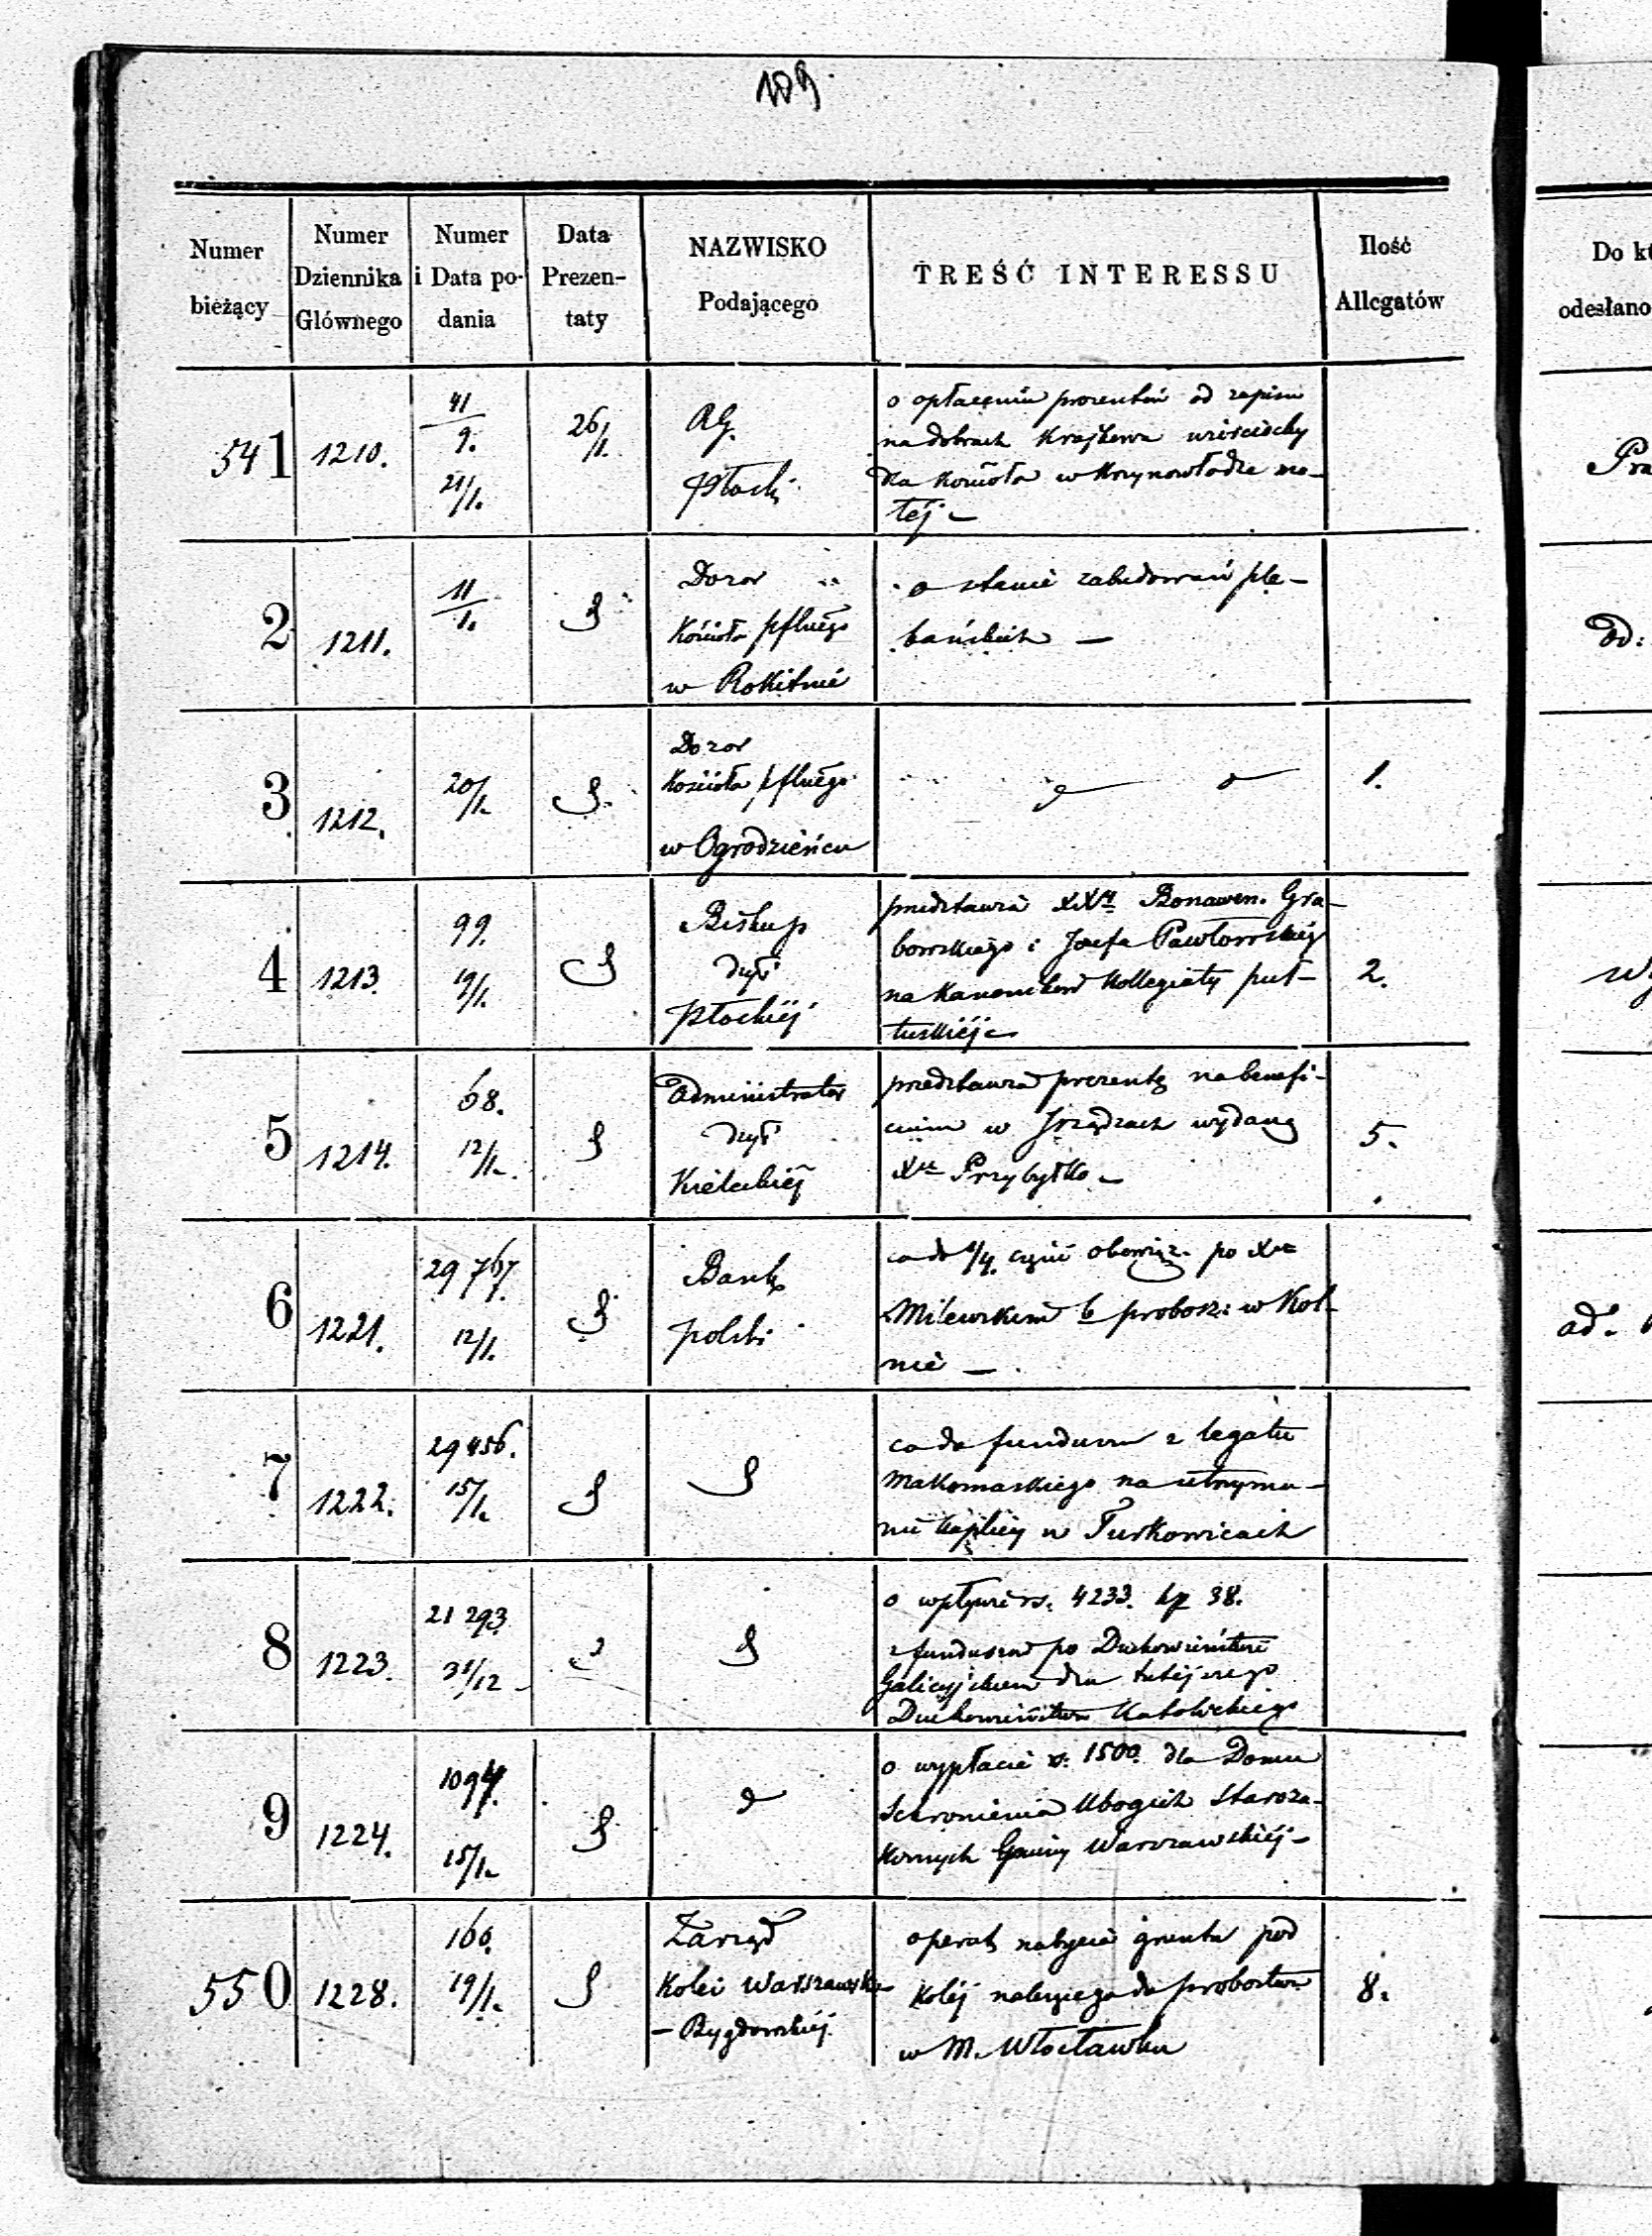 109
Numer bieżący
Numer Dziennika Głównego
Numer i Data podania
Data Prezentaty
NAZWISKO Podającego
TREŚĆ INTERESSU
Ilość Allegatów
Do kt
odesłano
541 1210. 41/9. 21/1. 26/1. RG. Płocki
o opłaceniu procentów od zapisu
na dobrach Krajkowa
dla kościoła w Krzynowłodze ma-
łéj –
Pra
2 1211. 11/1.
Dozor
Kościoła pflnego
w Rokitnie
o stanie zabudowań ple-
bańskich –
3 1212. 20/1.
Dozor
Kościoła pflnego
w Ogrodzieńcu
1.
4 1213. 99. 19/1.
Biskup
dyi
Płockiéj
przedstawia XX Bonawen. Gra-
bowskiego i Józefa Pawłowskiego
na Kanoników Kollegiaty puł-
tuskiéj –
2.
5 1214. 68. 12/1.
Administrator
dyi
Kieleckiéj
przedstawia prezentę na benefi-
cium w Irządzach wydaną
Xu Przybyłko –
5.
6 1221. 29767. 12/1.
Bank
polski
co do 1/4 części obowiąz. po Xu
Milewskim b probosz: w Kol-
nie –
ad.
7 1222. 29456. 15/1.
co do funduszu z legatu
Makomaskiego na utrzyma-
nie kaplicy w Turkowicach
8 1223. 21293. 31/12
o wpływie rs. 4233. kp 38.
z funduszów po Duchowieństwie
Galicyjskiem dla tutejszego
Duchowieństwa Katolickiego
9 1224. 1094. 15/1.
o wypłacie rs: 1500. dla Domu
Schronienia Ubogich Staroza-
konnych Gminy Warszawskiéj –
550 1228. 166. 19/1.
Zarząd
Kolei Warszawsko
– Bygdowskiéj
operat nabycia gruntu pod
Koléj należącego do probostwa
w M. Włocławku
8.